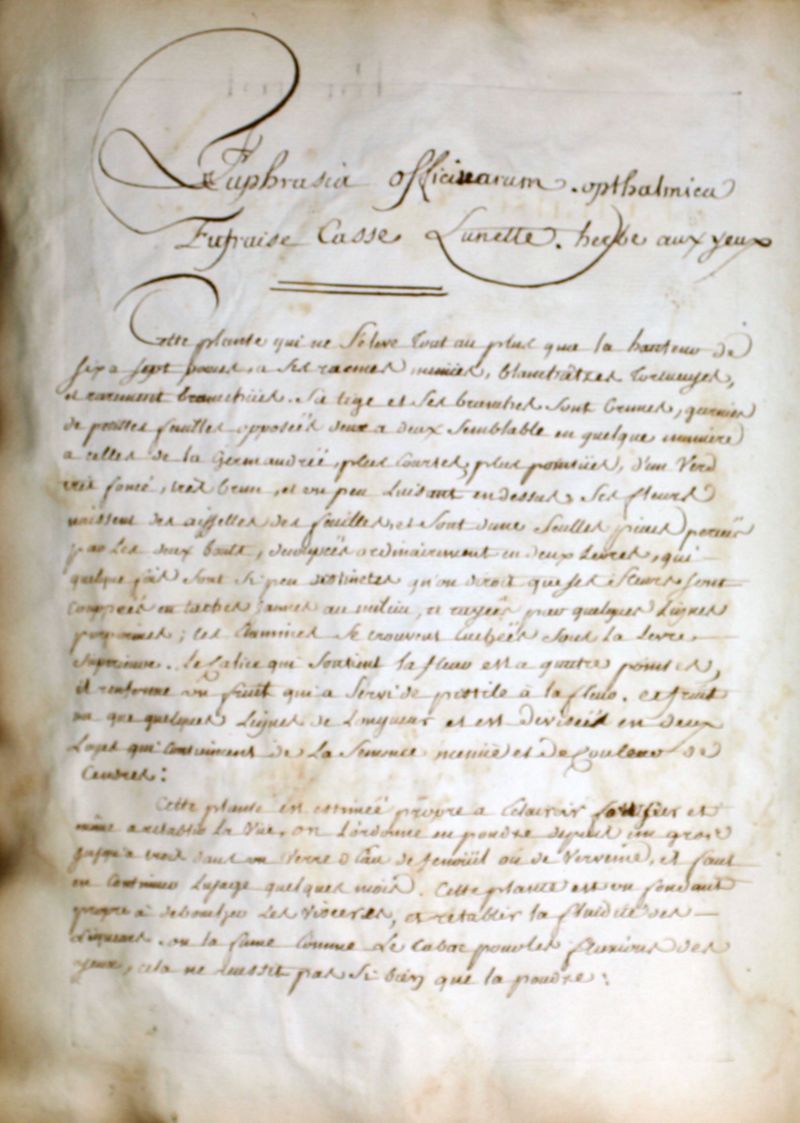 Euphrasia officinarum . opthalmica
Eufraise Casse Lunette . herbe aux yeux
Cette plante qui ne S'eleve Tout au plus que la hauteur de
six a sept pouces, a ses racines menües, blanchâtres Tortueuses,
et rarement branchües. Sa tige et Ses branches sont brunes, garnies
de petittes feuilles opposées deux a deux Semblable en quelque maniere
a celles de la Germandrée, plus Courtes, plus pointües, d'un Verd
tres foncé, tres brun, et un peu Luisant en dessus, Ses fleurs
naissent des aisselles des feuilles, et sont d'une Seulle piece percée
par Les deux bouts, decoupées ordinairement en deux Levres, qui
quelque fois sont Si peu distinctes qu'on diroit que ses fleurs sont
en taches jaunes au milieu, et rayées par quelques Lignes
; Les etamines Se trouvent Cachées sous la Levre
Superieure. Le Calice qui Soutient la fleur est a quatre pointes,
il renferme un fruit qui a Servi de pistile à la fleur. ce fruit
na que quelques Lignes de Longueur et est divisée en deux
Loges qui Contiennent de La Semence menüe et de Couleur de
Cendres :
Cette plante est estimée propre a Eclaircir fortifier et
même a retablir La Vüe, on L'ordonne en poudre depuis un gros
jusqu'a trois dans un Verre d'Eau de fenoüil ou de Verveine, et faut
en Continuer L'usage quelques mois. Cette plante est un fondant
propre à deboucher Les Visceres, et retablir la fluidité des
Liqueurs . on la fume Comme Le tabac pour les fluxions des
yeux, cela ne reussit pas Si bien que la poudre :